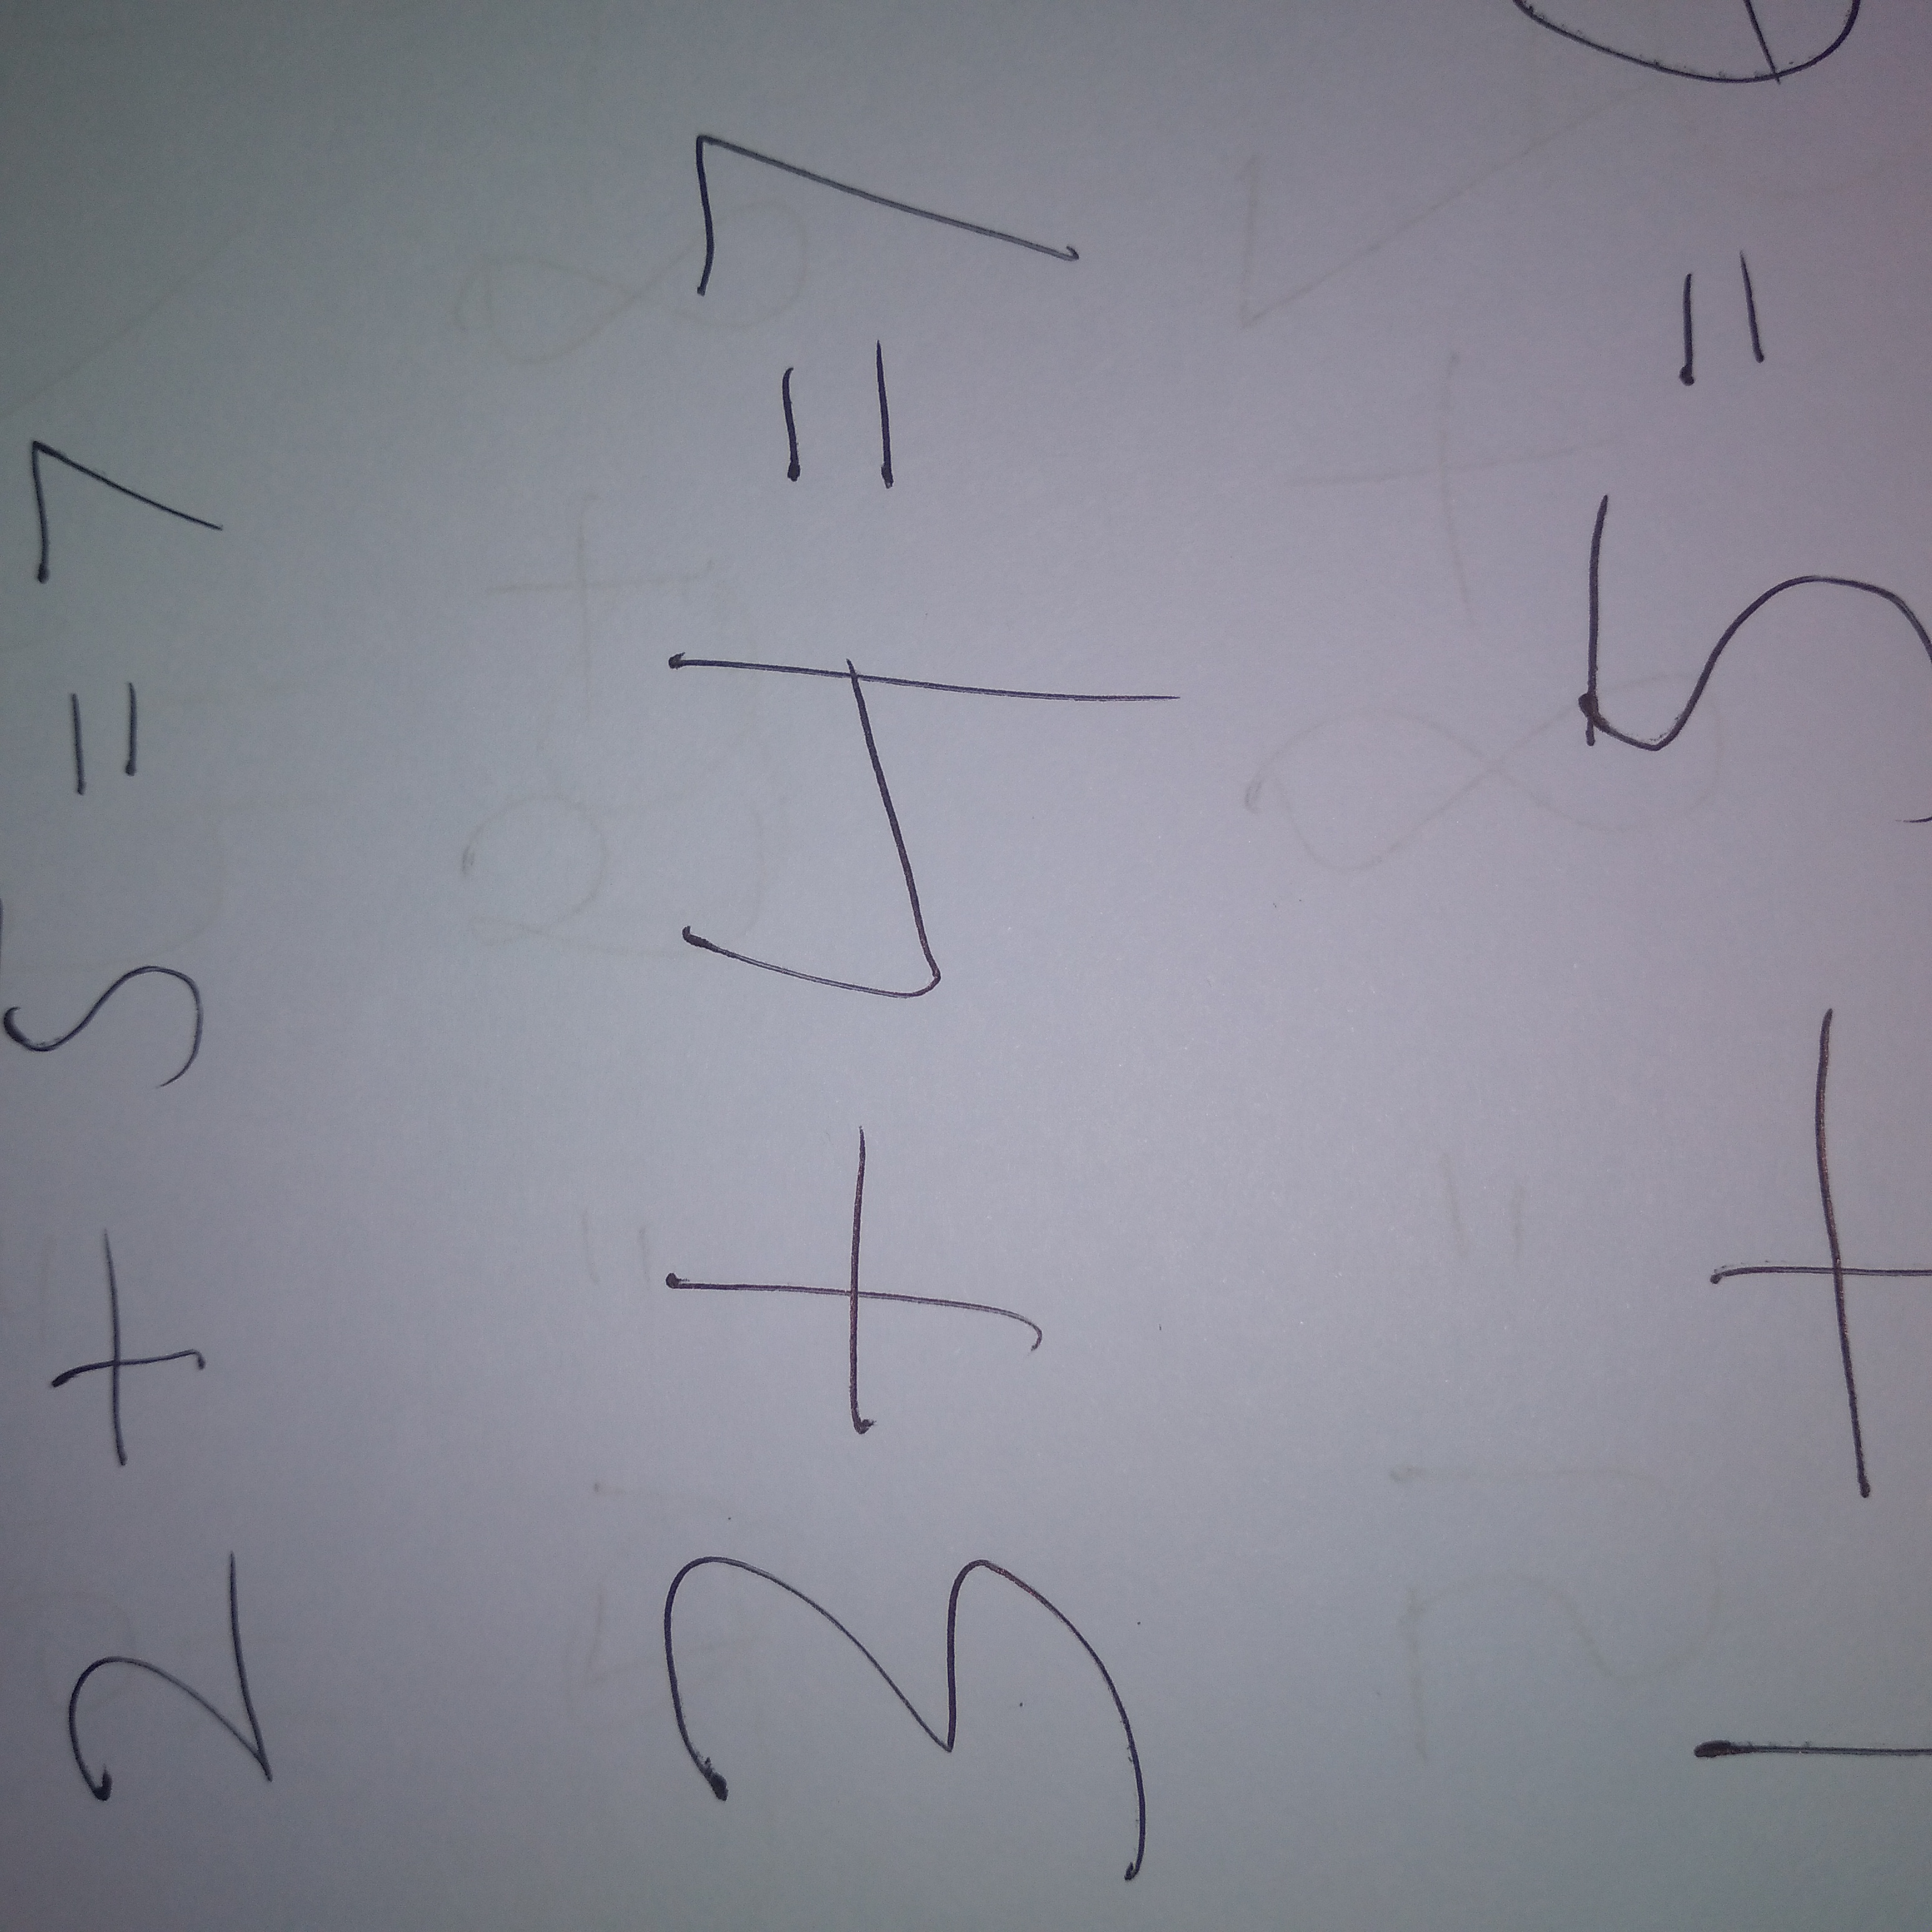 2 + 5 = 7
3 + 4 = 7
1 + 5 = 6